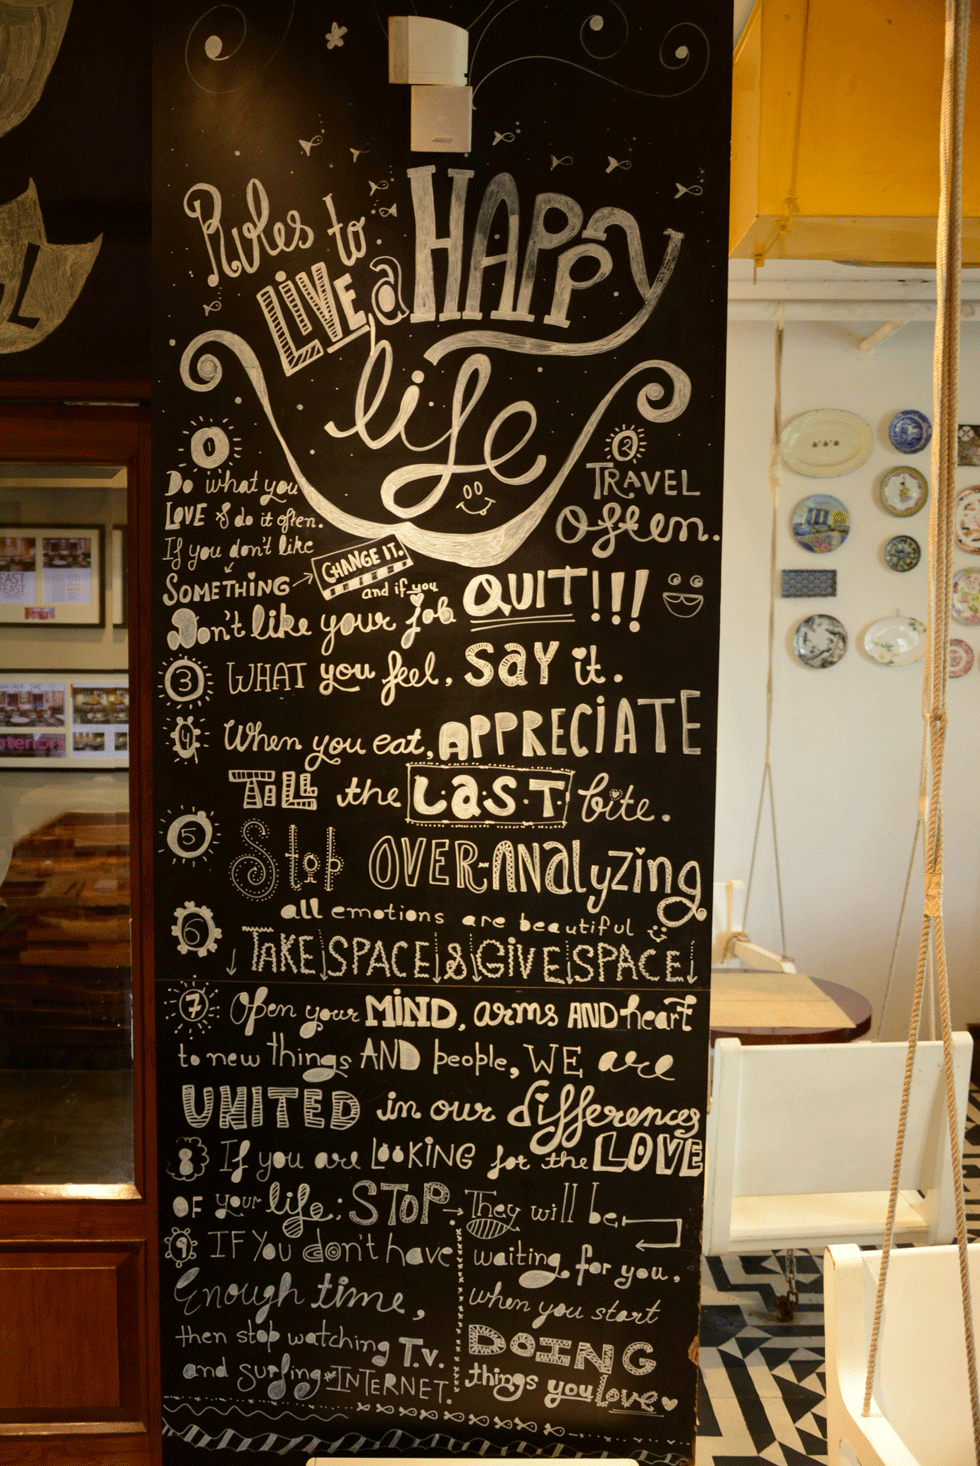 Rules to
LIVE a HAPPY
life
1
Do what you
LOVE & do it often.
If you don't like
SOMETHING → CHANGE IT.
and if you
Don't like your job QUIT!!!
2
TRAVEL
often.
3 WHAT you feel, SAY it.
4 When you eat, APPRECIATE
TILL the LAST bite.
5 Stop OVER-ANALYZING
all emotions are beautiful
6 TAKE SPACE & GIVE SPACE
7 Open your MIND, arms AND heart
to new things AND people, WE are
UNITED in our differences
8 If you are LOOKING for the LOVE
OF your life; STOP → They will be
waiting for you,
when you start
DOING
things you love
9 IF YOU don't have
Enough time,
then stop watching T.V.
and surfing INTERNET.